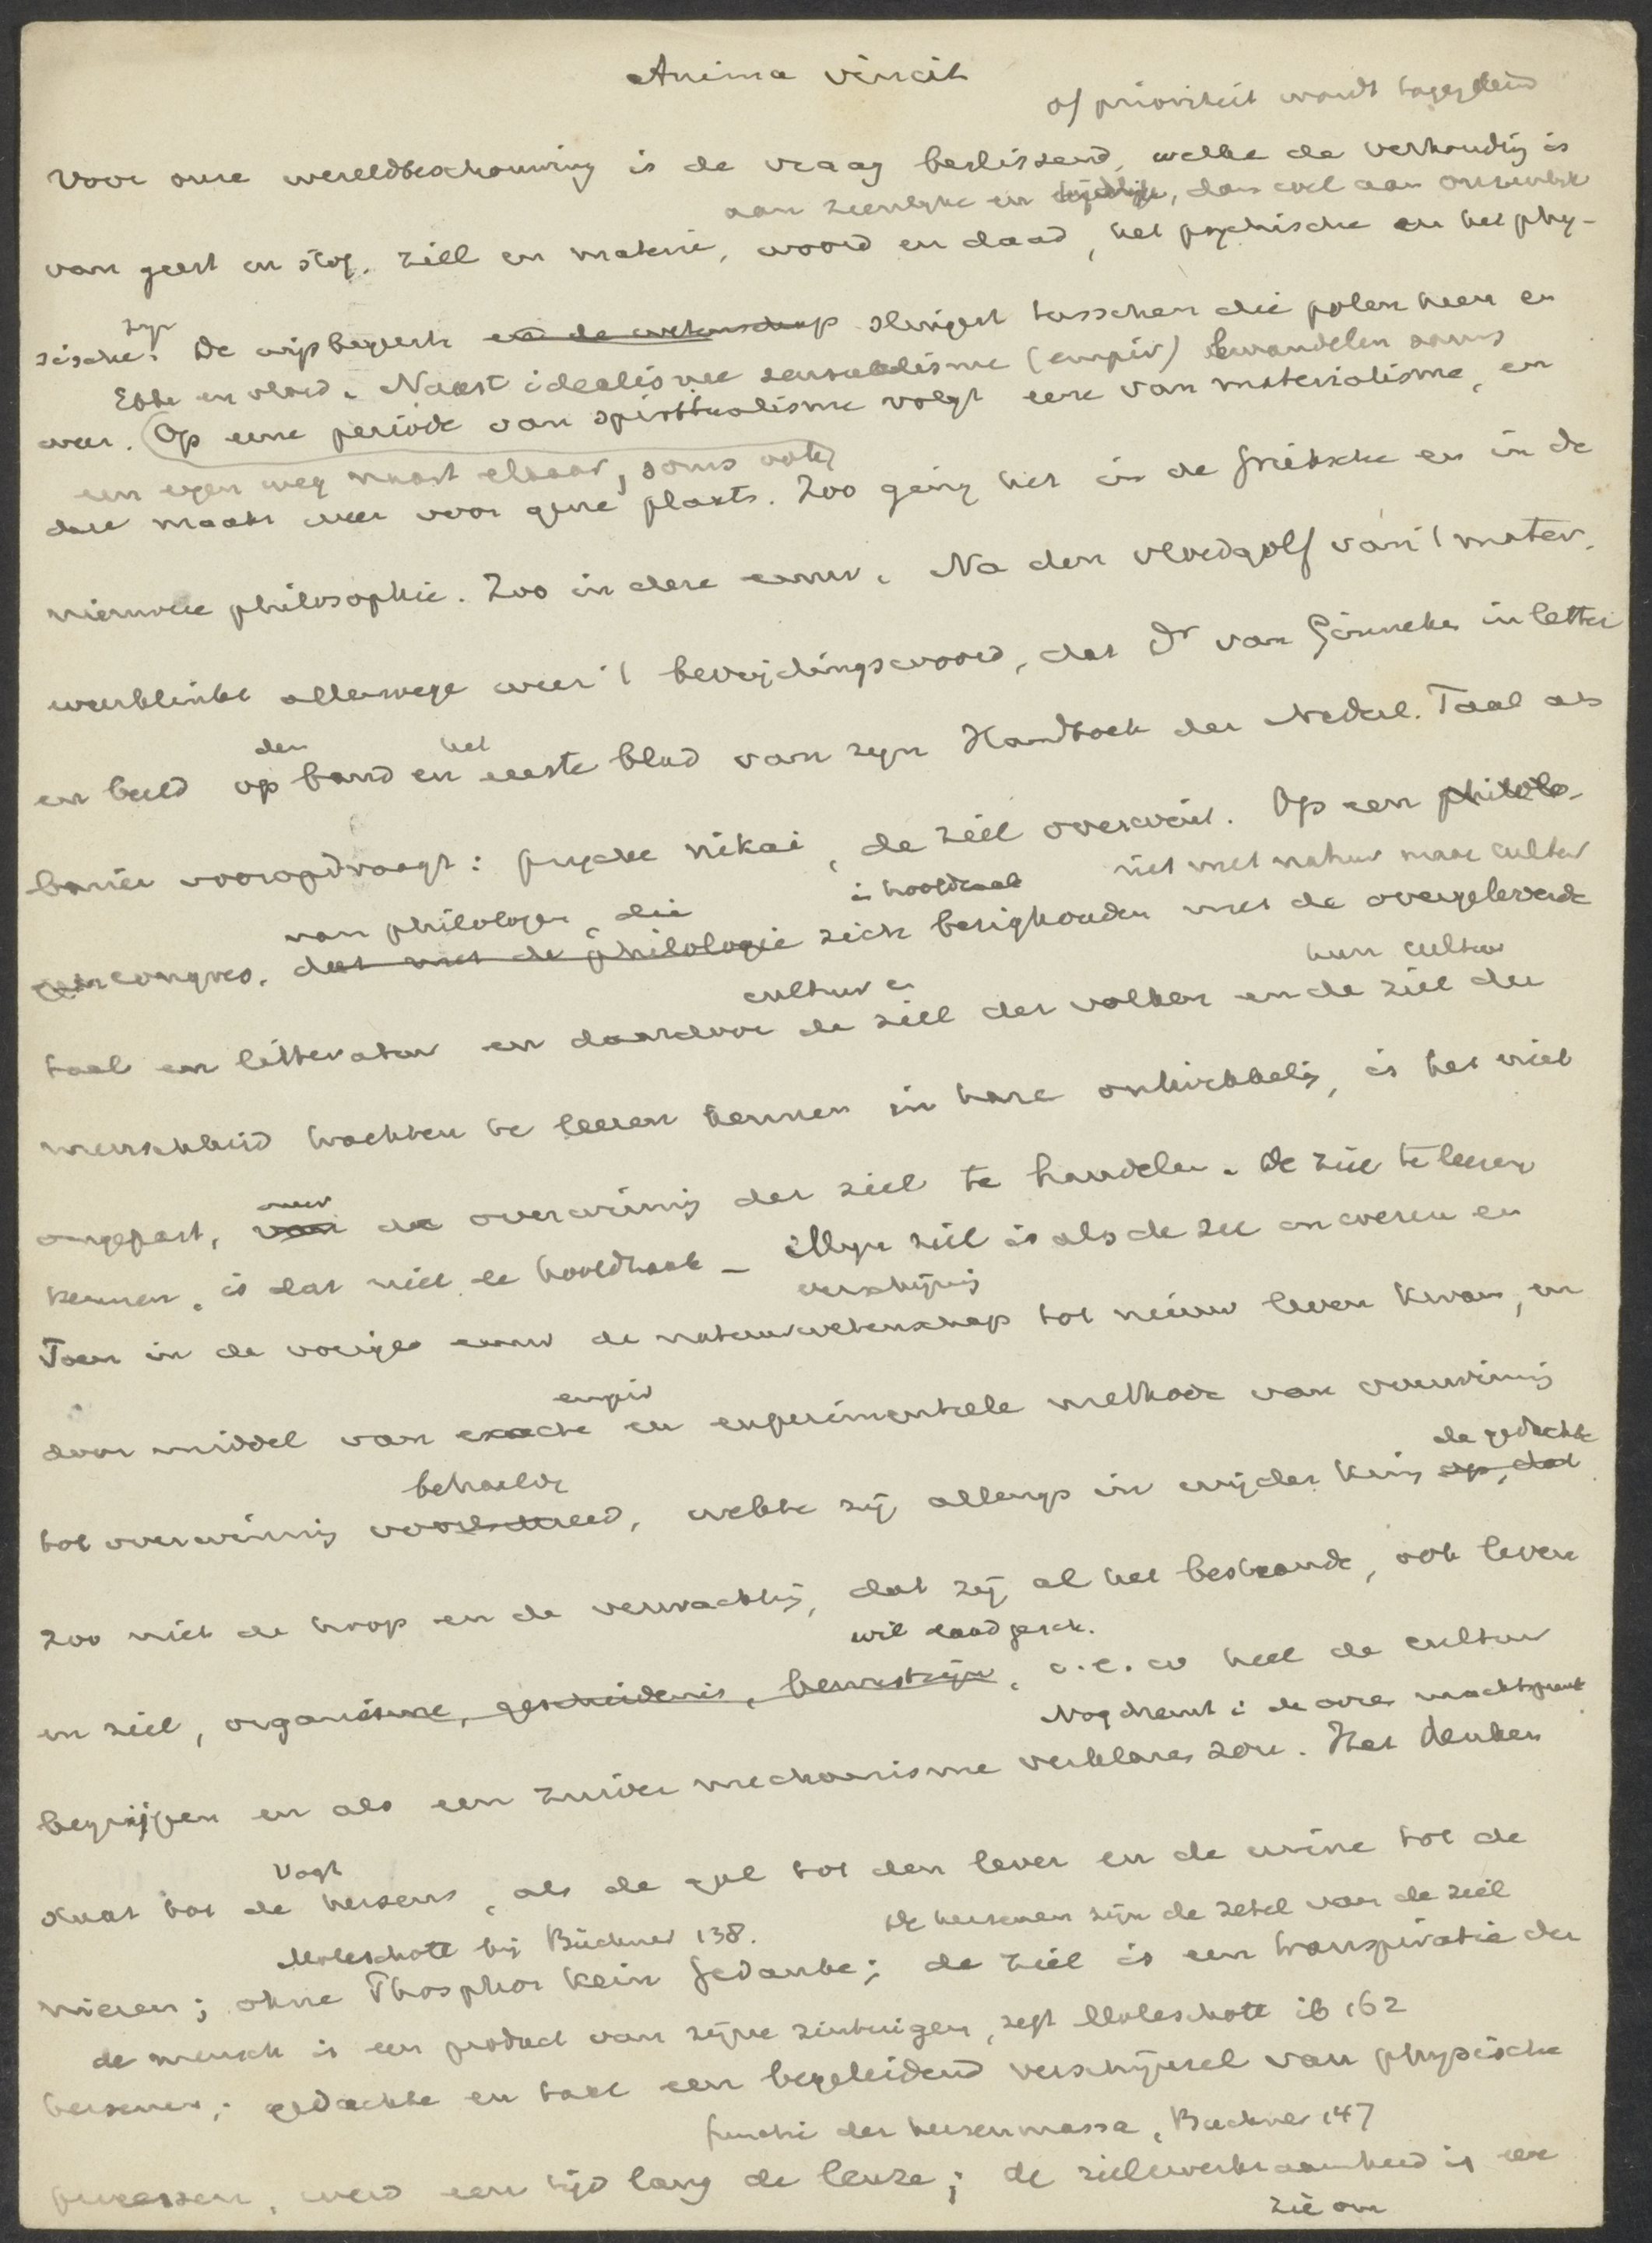 Anima vincit
of prioriteit wordt toegekend
Voor onze wereldbeschouwing is de vraag beslissend, welke de verhouding is
aan zienlyke en tijdelijke, dan wel aan onzienlyke
van geest en stof, ziel en materie, woord en daad, het psychische en het phy-
zyn
sische. De wijsbegeerte en de wetenschap slingert tusschen die polen heen en
Ebbe en vloed. Naast idealisme sensualisme (empir) bewandelen soms
weer. (Op eene periode van spiritualisme volgt eene van materialisme, en
een eigen weg naast elkaar, soms ook)
deze maakt weer voor gene plaats. Zoo ging het in de Grieksche en in de
nieuwere philosophie. Zoo in deze eeuw. Na den vloedgolf van 't mater.
weerklinkt allerwege weer 't bevrijdingswoord, dat Dr van Ginneken in letter
den het
en beeld op band en eerste blad van zyn Handboek der Nederl. Taal als
banier vooropdraagt: psyche nikai, de ziel overwint. Op een philolo-
niet met natuur maar cultuur
van philologen, die in hoofdzaak
congres, dat met de philologie zich bezighouden met de overgeleverde
hun cultuur
cultuur en
taal en litteratuur en daardoor de ziel der volken en de ziel der
menschheid trachten te leeren kennen in hare ontwikkeling, is het niet
over
ongepast, van de overwinning der ziel te handelen. De ziel te leeren
kennen, is dat niet de hoofdzaak – Mijn ziel is als de zee en weren en
verschijning
Toen in de vorige eeuw de natuurwetenschap tot nieuw leven kwam, en
empir
door middel van exacte en experimenteele methode van overwinning
de gedachte
behaalde
tot overwinning voortschreed, wekte zij allengs in wijder kring op, dat
zoo niet de hoop en de verwachting, dat zij al het bestaande, ook leven
wil daad gesch.
en ziel, organisme, geschiedenis, bewustzijn, i.e.w heel de cultuur
Nog dient i de ares machtspreuk
begrijpen en als een zuiver mechanisme verklaren zou. Het denken
Vogt
staat tot de hersens, als de gal tot den lever en de urine tot de
Moleschott bij Büchner 138. De hersenen zijn de zetel van de ziel
nieren; ohne Phosphor kein Gedanke; de ziel is een transpiratie der
de mensch is een product van zijne zintuigen, zegt Moleschott ib 162
hersenen; gedachte en taal een begeleidend verschijnsel van physische
functie der hersenmassa, Buchner 147
processen, werd een tijd lang de leuze; de zielewerkzaamheid is een
zie om